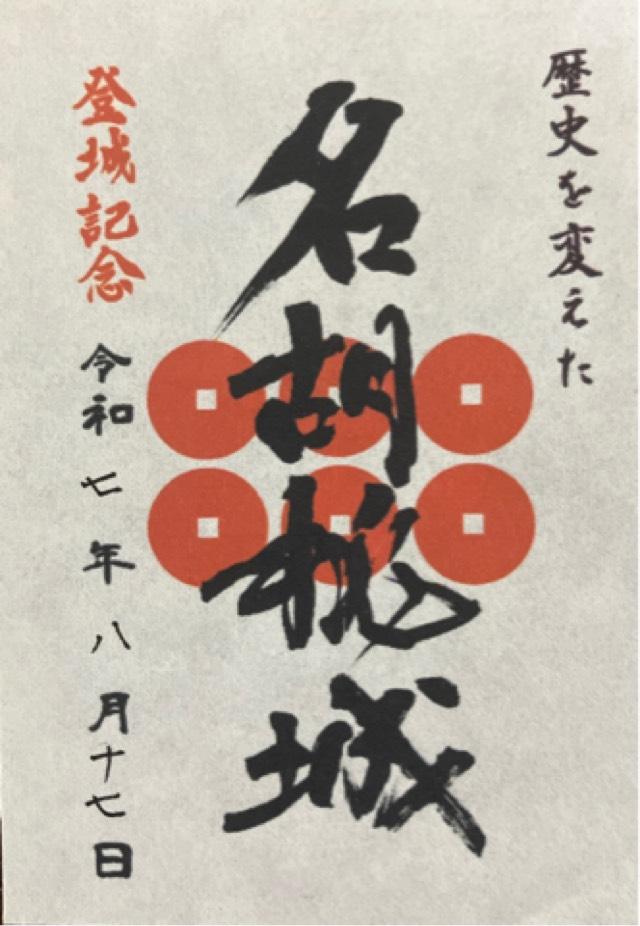 歴史を変えた
名胡桃城
登城記念
令和七年八月十七日